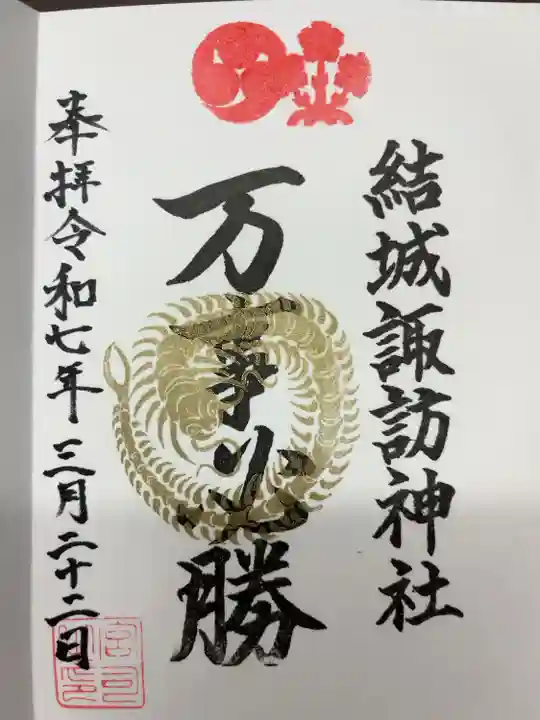 結城諏訪神社
万事必勝
奉拝令和七年三月二十二日